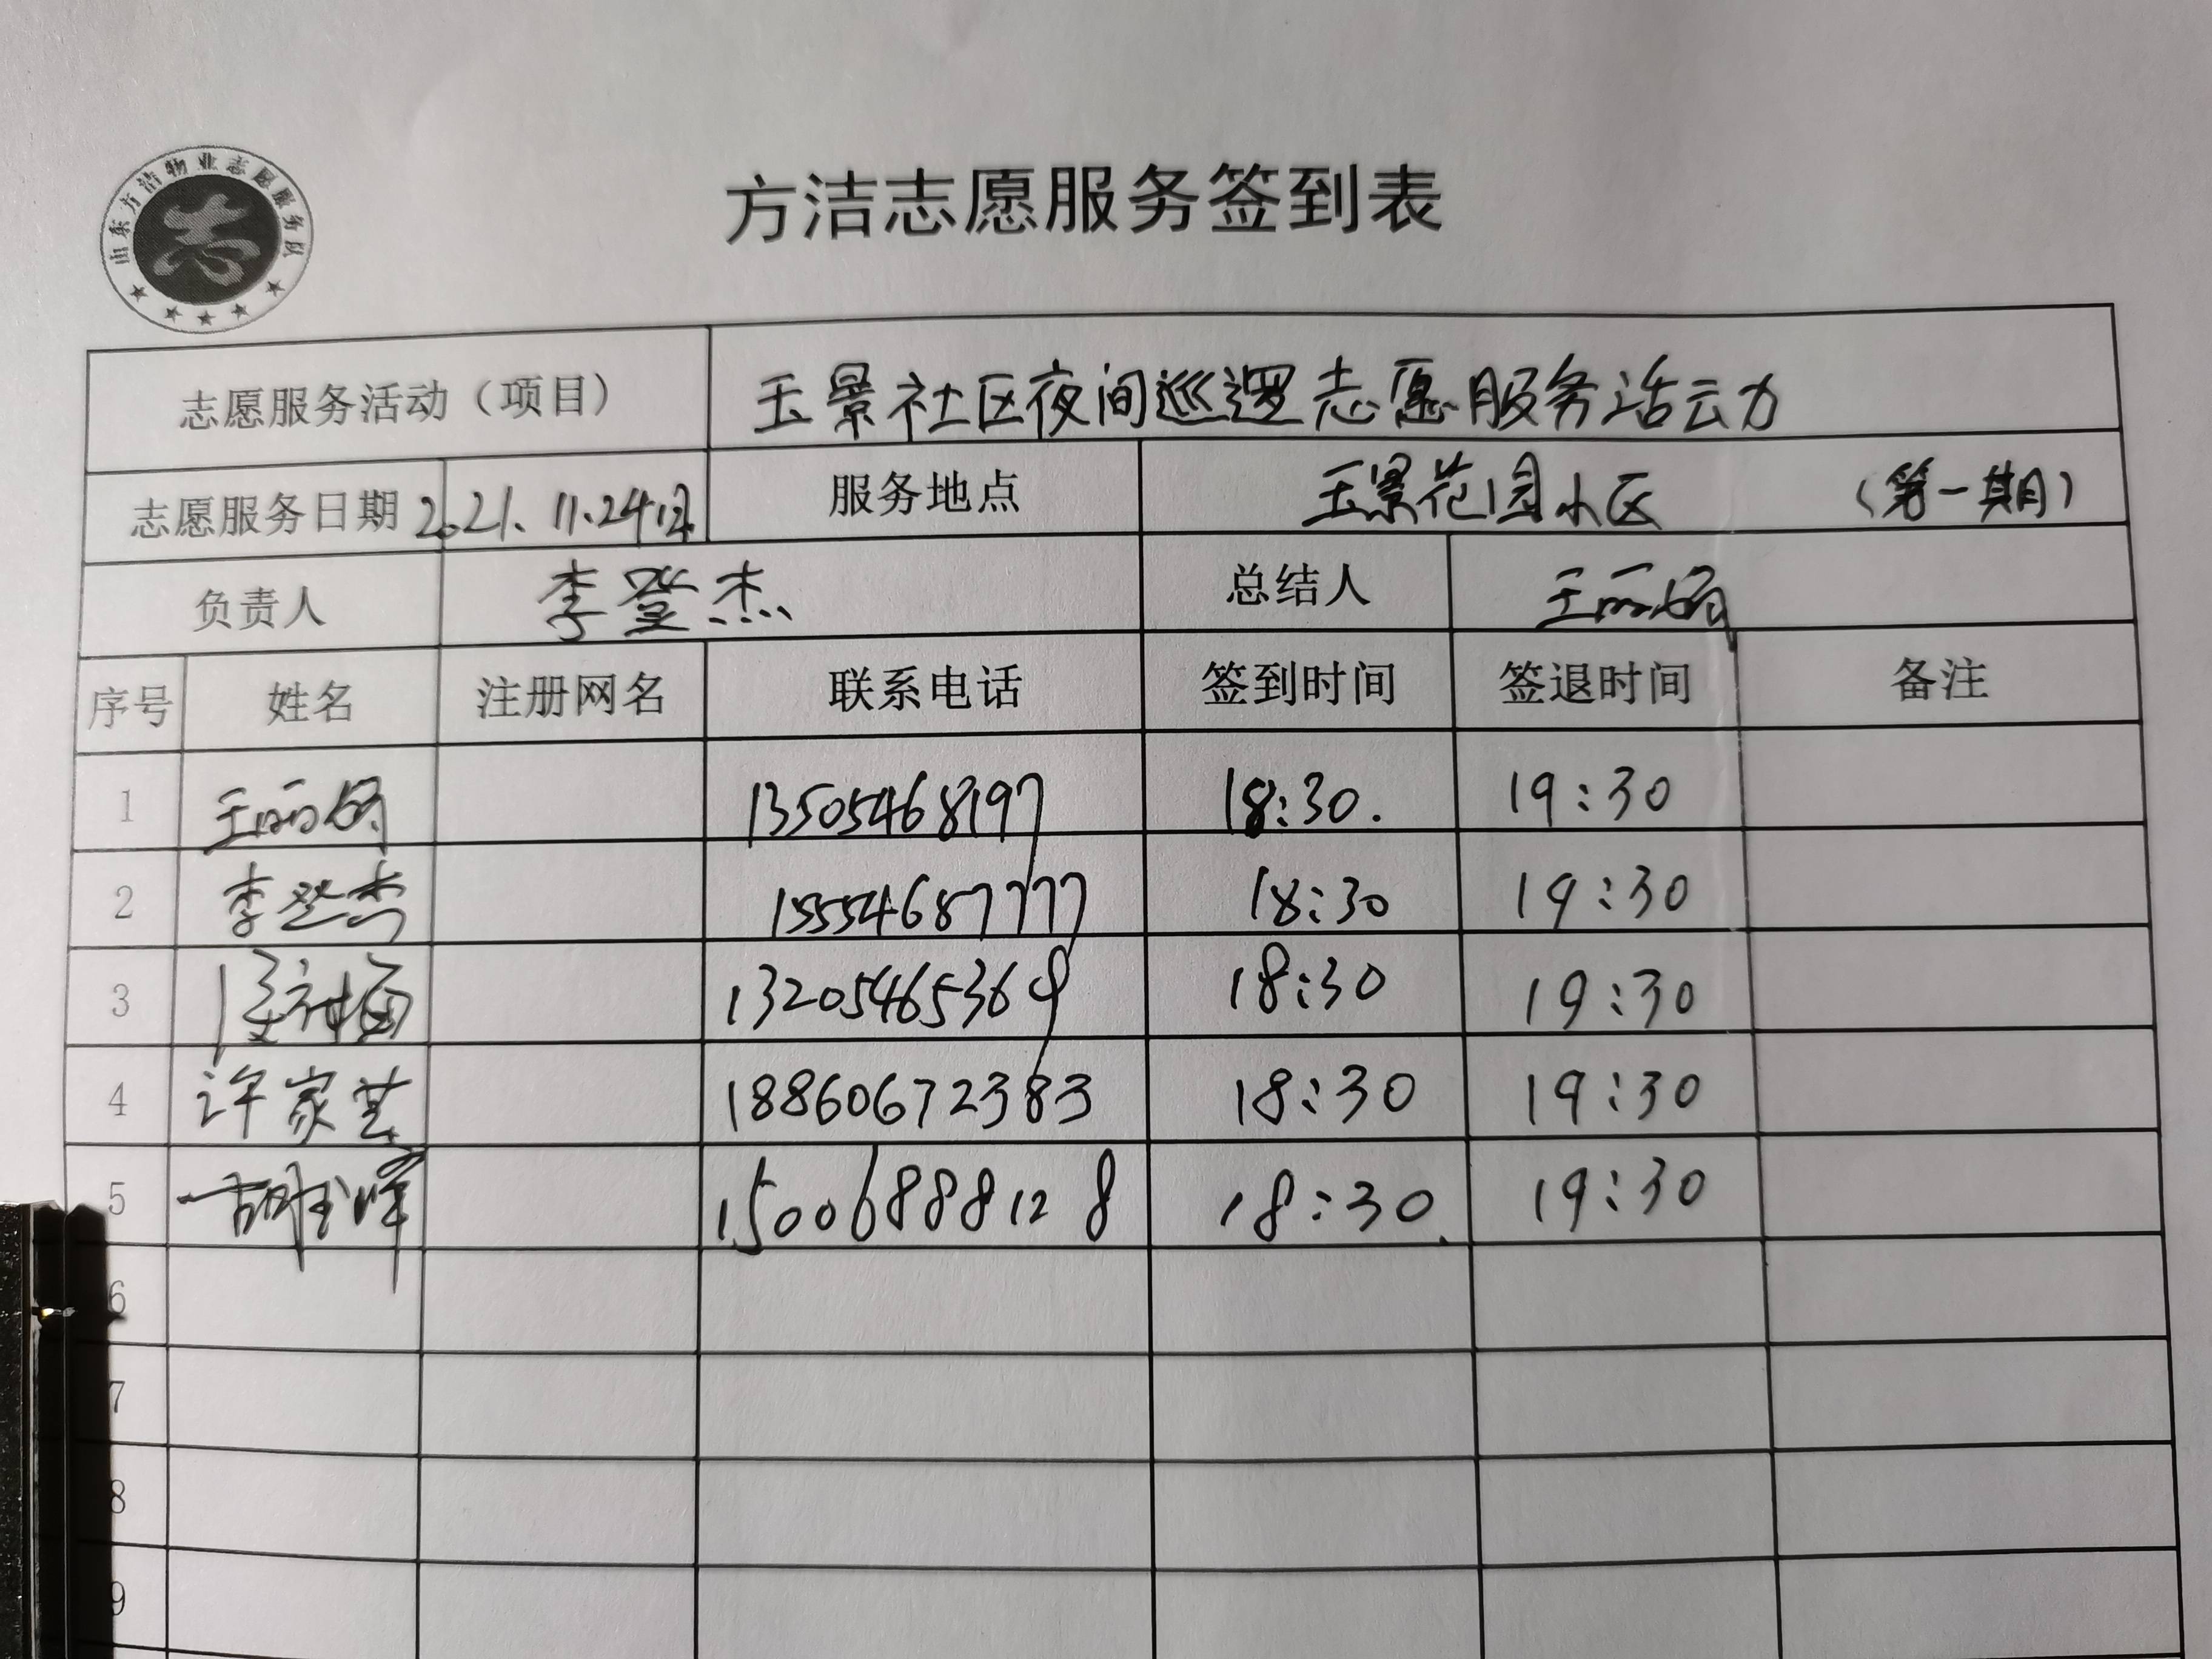 山东方洁物业志愿服务队
志
方洁志愿服务签到表
志愿服务活动（项目） 玉景社区夜间巡逻志愿服务活动
志愿服务日期 2021.11.24日 服务地点 玉景花园小区 （第一期）
负责人 李登杰 总结人 王丽娟
序号 姓名 注册网名 联系电话 签到时间 签退时间 备注
1 王丽娟 13505468197 18:30. 19:30
2 李登杰 15554687777 18:30 19:30
3 13205465369 18:30 19:30
4 许家芸 18860672383 18:30 19:30
5 15006888128 18:30 19:30
6
7
8
9